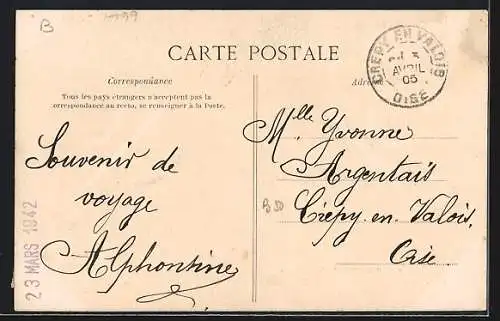 B
CARTE POSTALE
Correspondance
Tous les pays étrangers n'acceptent pas la
correspondance au recto, se renseigner à la Poste.
Souvenir de
voyage
Alphontine
23 MARS 1942
CREPY EN VALOIS
AVRIL
05
OISE
Mlle Yvonne
Argentais
Crépy-en-Valois.
Oise